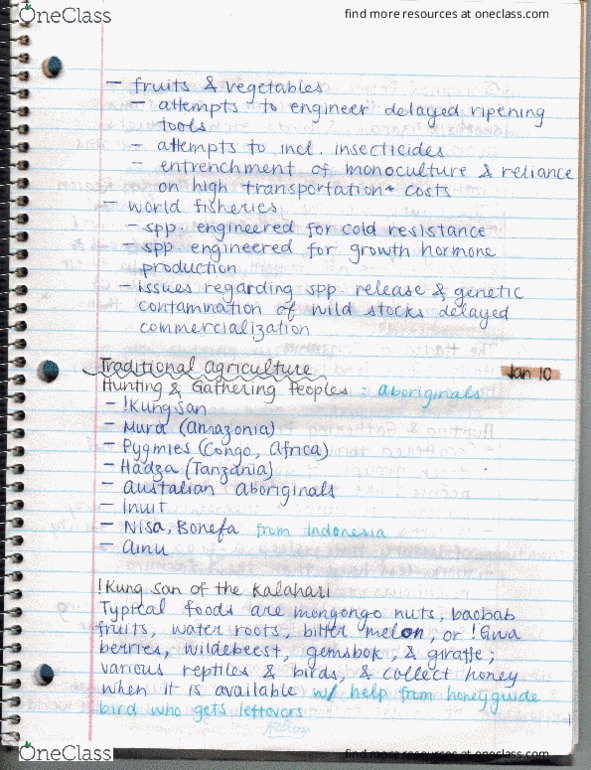 OneClass
find more resources at oneclass.com
- fruits & vegetables
- attempts to engineer delayed ripening
tools
- attempts to incl. insecticides
- entrenchment of monoculture & reliance
on high transportation costs
- world fisheries
- spp. engineered for cold resistance
- spp. engineered for growth hormone
production
- issues regarding spp. release & genetic
contamination of wild stocks delayed
commercialization
Traditional agriculture
Jan 10
Hunting & Gathering Peoples : aboriginals
- !Kung San
- Mura (Amazonia)
- Pygmies (Congo, Africa)
- Hadza (Tanzania)
- Austalian aboriginals
- Inuit
- Nisa, Bonefa from Indonesia
- Ainu
!Kung San of the Kalahari
Typical foods are mongongo nuts, baobab
fruits, water roots, bitter melon, or !Gwa
berries, wildebeest, gemsbok, & giraffe;
various reptiles & birds, & collect honey
when it is available w/ help from honeyguide
bird who gets leftovers
OneClass
find more resources at oneclass.com